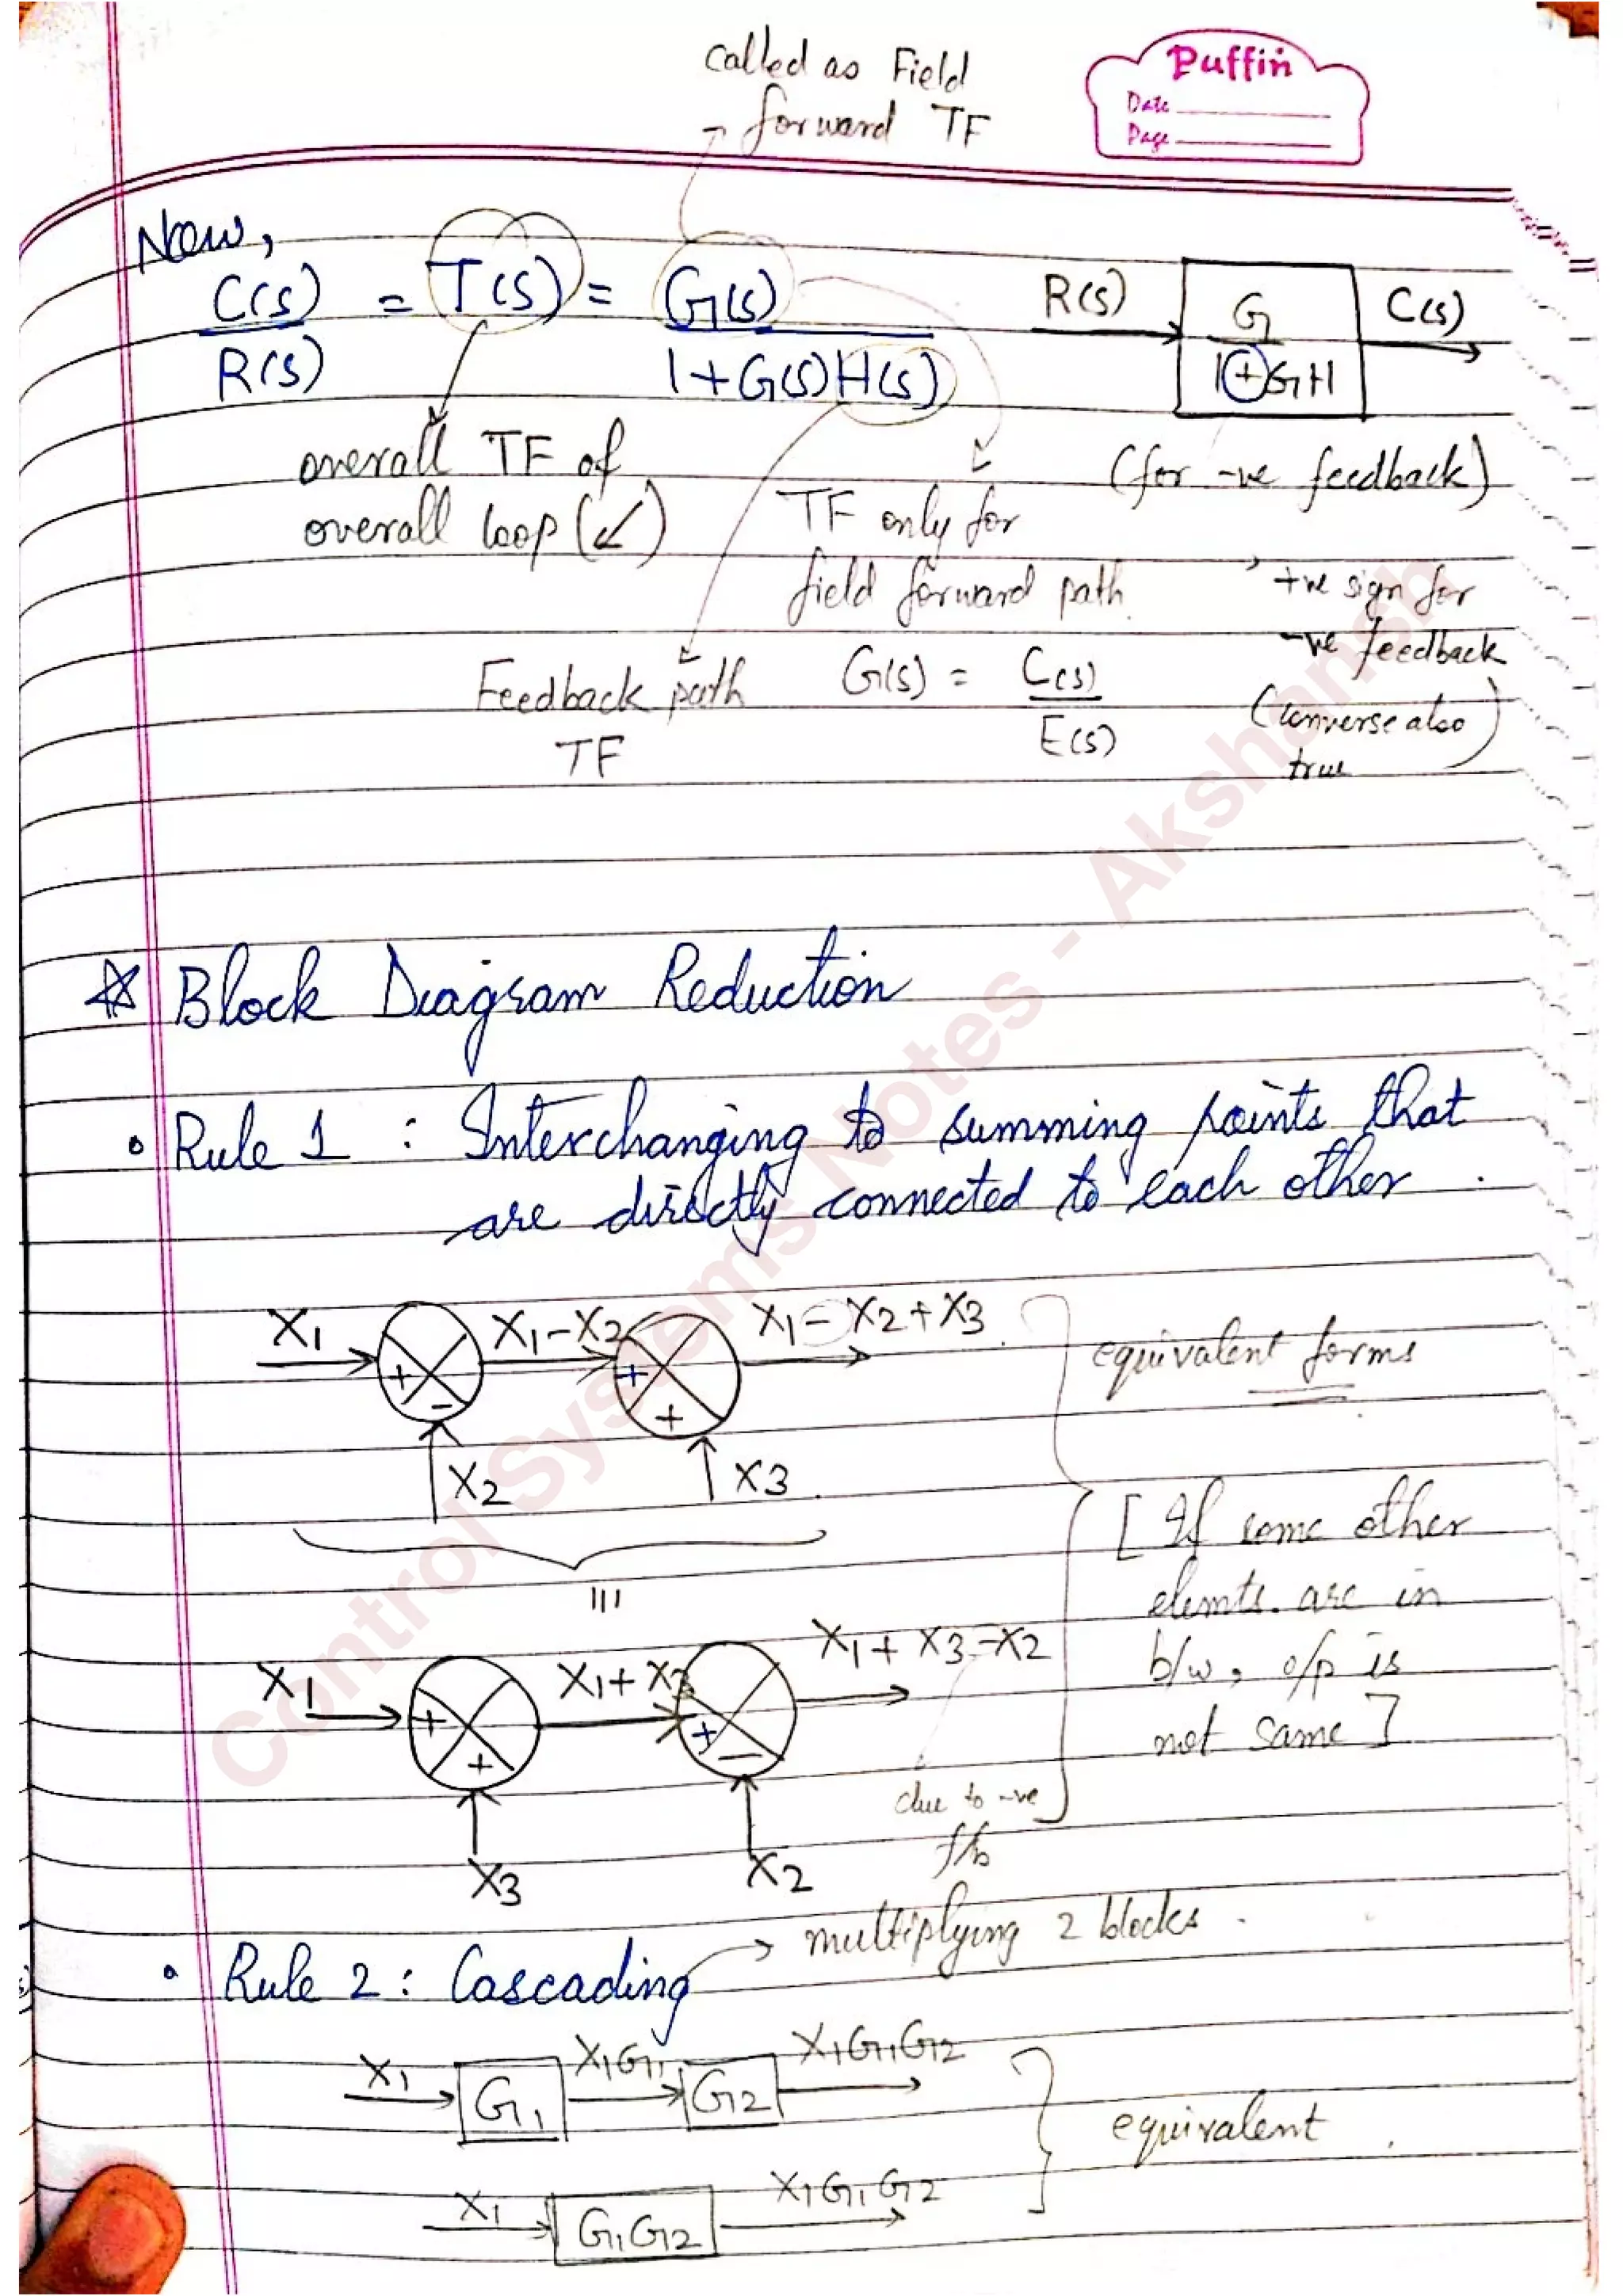 called as Field
forward TF
Puffin
Date
Page
Now,
C(s)/R(s) = T(s) = G(s)/1+G(s)H(s)
R(s) G/1+GH C(s)
overall TF of
overall loop (↙)
TF only for
field forward path
G(s) = C(s)/E(s)
(for -ve feedback)
+ve sign for
-ve feedback
(converse also
true)
Feedback path
TF
Block Diagram Reduction
• Rule 1 : Interchanging to summing points that
are directly connected to each other.
X1 X1-X2 X1-X2+X3
+ - + +
X2 X3
equivalent forms
[If some other
elemts. are in
b/w, o/p is
not same]
X1 X1+X3 X1+X3-X2
+ + + -
X3 X2
due to -ve
f/b
• Rule 2 : Cascading → multiplying 2 blocks.
X1 G1 X1G1 G2 X1G1G2
equivalent.
X1 G1G2 X1G1G2
Control Systems Notes - Akshansh